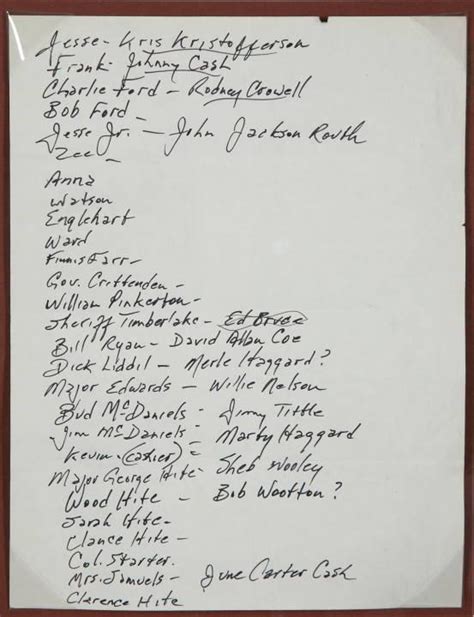 Jesse - Kris Kristofferson
Frank - Johnny Cash
Charlie Ford - Rodney Crowell
Bob Ford -
Jesse Jr. - John Jackson Routh
Zee -
Anna
Watson
Englehart
Ward
Finnis Farr -
Gov. Crittenden -
William Pinkerton -
Sheriff Timberlake - Ed Bruce
Bill Ryan - David Allan Coe
Dick Liddil - Merle Haggard?
Major Edwards - Willie Nelson
Bud McDaniels - Jimmy Tittle
Jim McDaniels - Marty Haggard
Kevin (cashier) =
Major George Hite - Sheb Wooley
Wood Hite - Bob Wootton?
Sarah Hite -
Clance Hite -
Col. Starter.
Mrs. Samuels - June Carter Cash
Clarence Hite